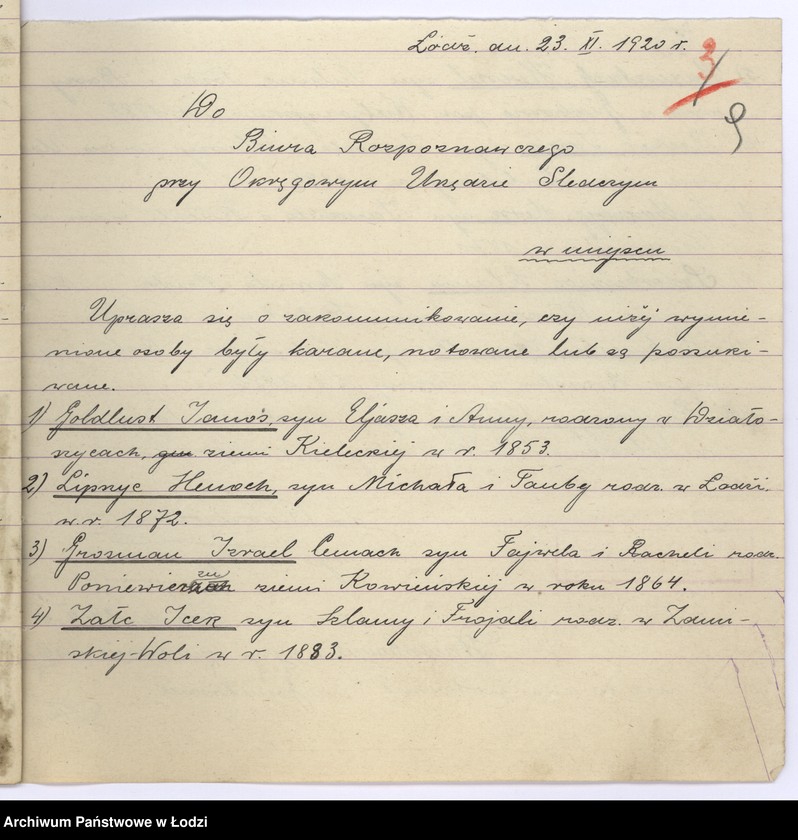 Łódź. dn. 23. XI. 1920 r.
3
9
Do
Biura Rozpoznawczego
przy Okręgowym Urzędzie Śledczym
w miejscu
Uprasza się o zakomunikowanie, czy niżej wymie-
nione osoby były karane, notowane lub są poszuki-
wane.
1) Goldlust Janos syn Eljasza i Anny, rodzony w Działo-
szycach, gm ziemi Kieleckiej w r. 1853.
2) Lipszyc Henoch, syn Michała i Tauby rodz. w Łodzi.
w r. 1872.
3) Grosman Izrael Cemach syn Fajwela i Racheli rodz.
Poniewiczu ziemi Kowieńskiej w roku 1864.
4) Załc Icek syn Szlamy i Frajdli rodz. w Zduń-
skiej-Woli w r. 1883.
Archiwum Państwowe w Łodzi